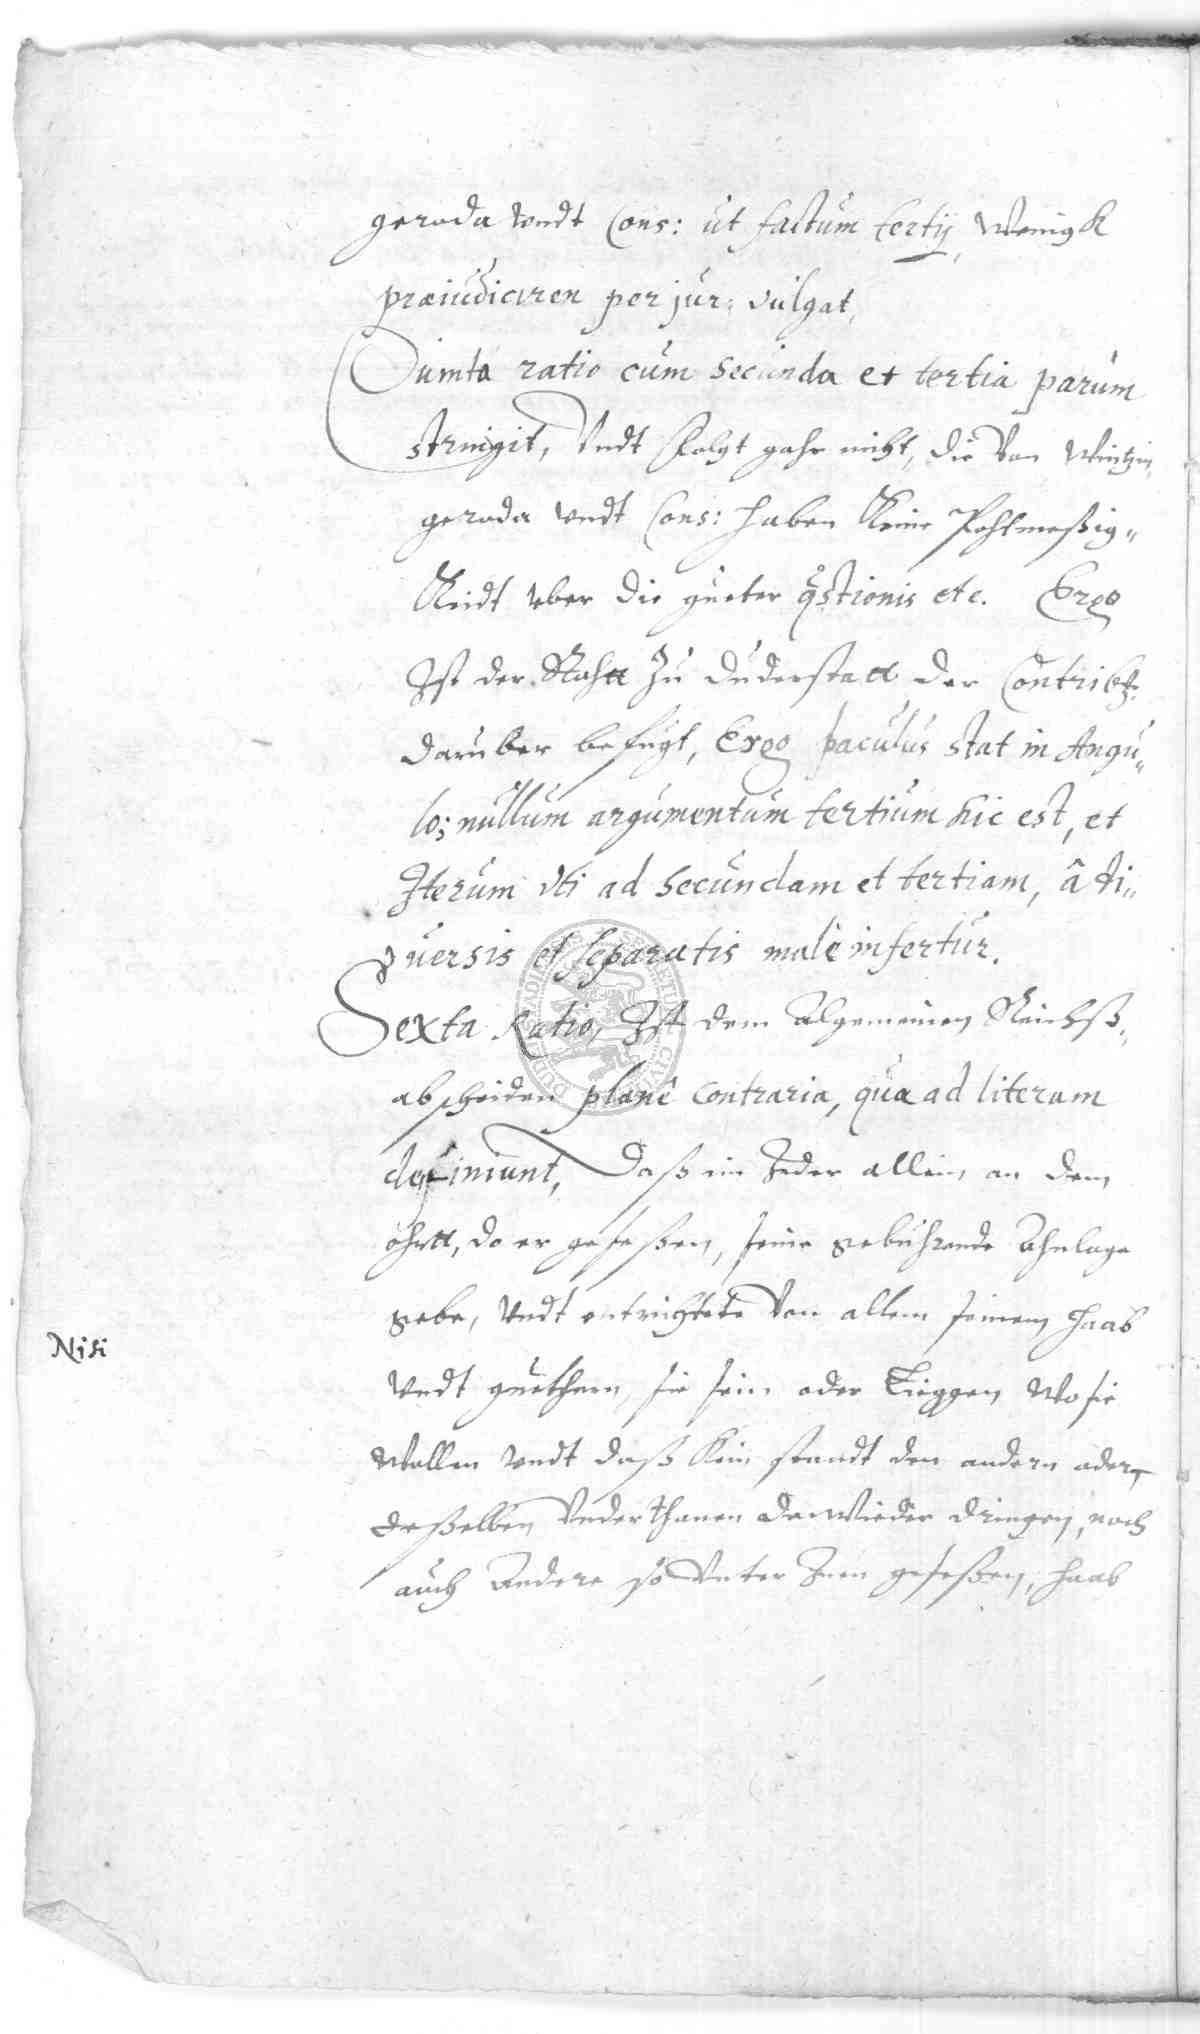 geroda vndt Cons: ut factum tertij, wenigk
præiudiciren per jur: vulgat,
Quinta ratio cum secunda et tertia parum
stringit, Vndt folgt gahr nicht, die Von Wintzin,
geroda vndt Cons: haben keine Bohtmeßig„
keidt vber die gueter qstionis etc. Ergo
Ist der Rahtt zu Duderstatt der Contribũ:
daruber befugt, Ergo baculus stat in Angu„
lo; nullum argumentum tertium hic est, et
Iterum vti ad secundam et tertiam, â di„
uersis et separatis malè infertur.
Sexta Ratio, Ist dem Algemeinen Reichß,
abscheiden planè contraria, quæ ad literam
definiunt, Daß ein Jeder allein, an dem
ohrtt, do er geseßen, seine gebuhrende Ahnlage
gebe, Vndt entrichtete Von allem seinem haab
Nisi
Vndt guethern, sie sein oder Lieggen wo sie
wollen vndt daß kein standt den andern oder
deßelben Vnderthanen darwieder dringen, noch
auch Andere so Vnter Ihm geseßen, haab